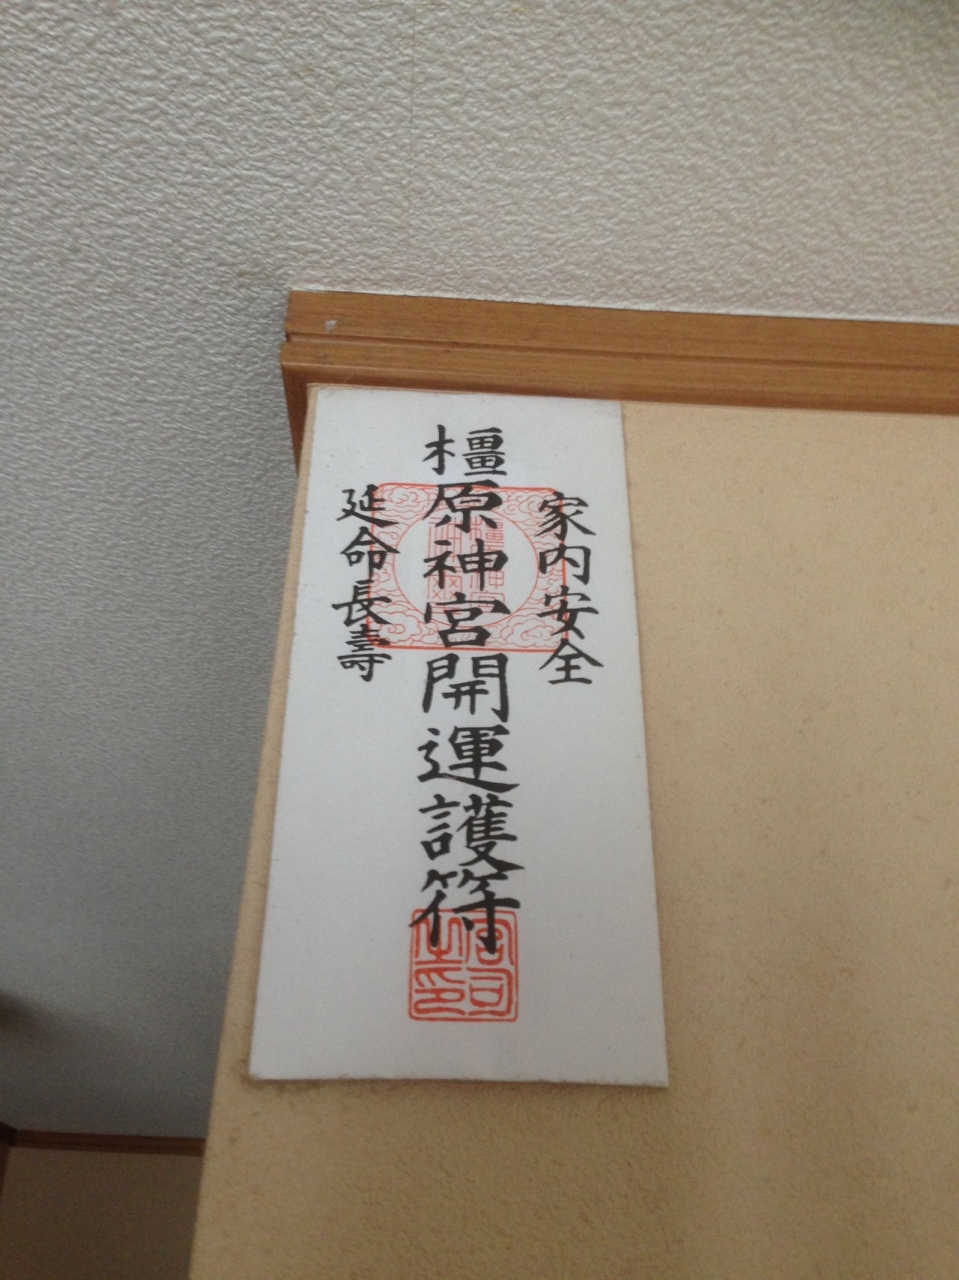 家内安全
橿原神宮開運護符
延命長壽
宮司之印